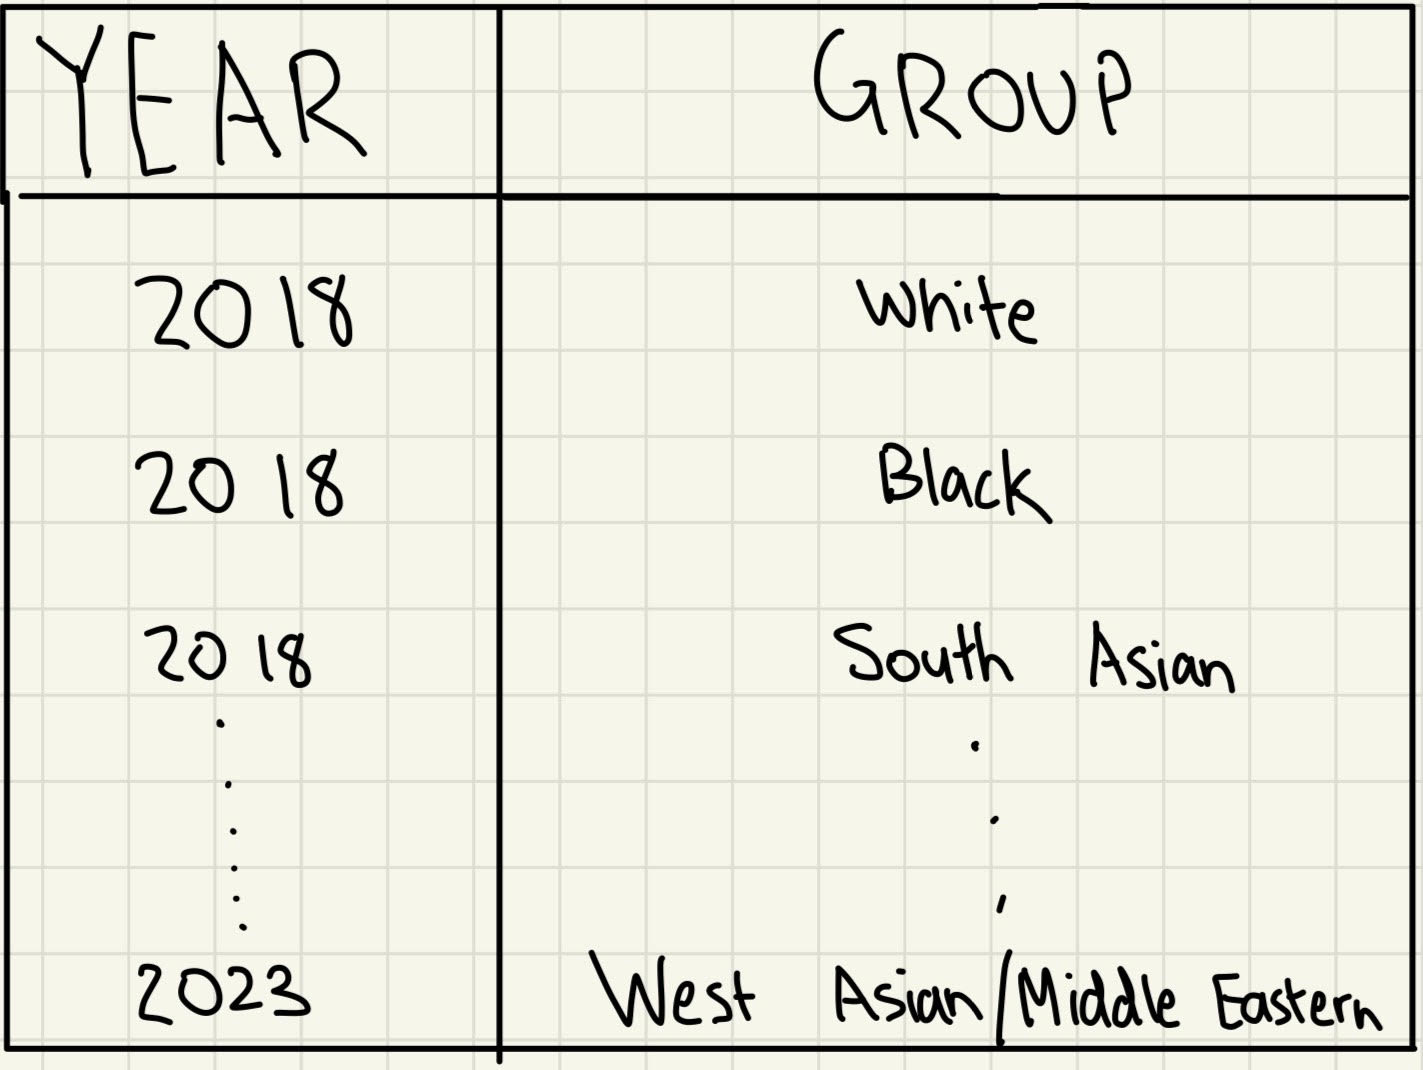 YEAR GROUP
2018 White
2018 Black
2018 South Asian
2023 West Asian/Middle Eastern